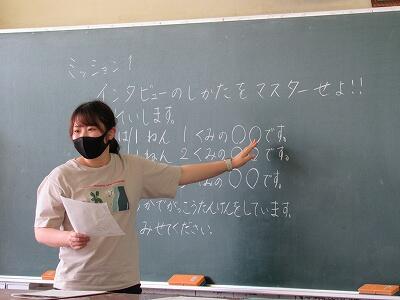 ミッション1
インタビューのしかたをマスターせよ!!
いします。
1ねん 1くみの〇〇です。
1ねん 2くみの〇〇です。
くみの〇〇です。
でがっこうたんけんをしています。
みせてください。